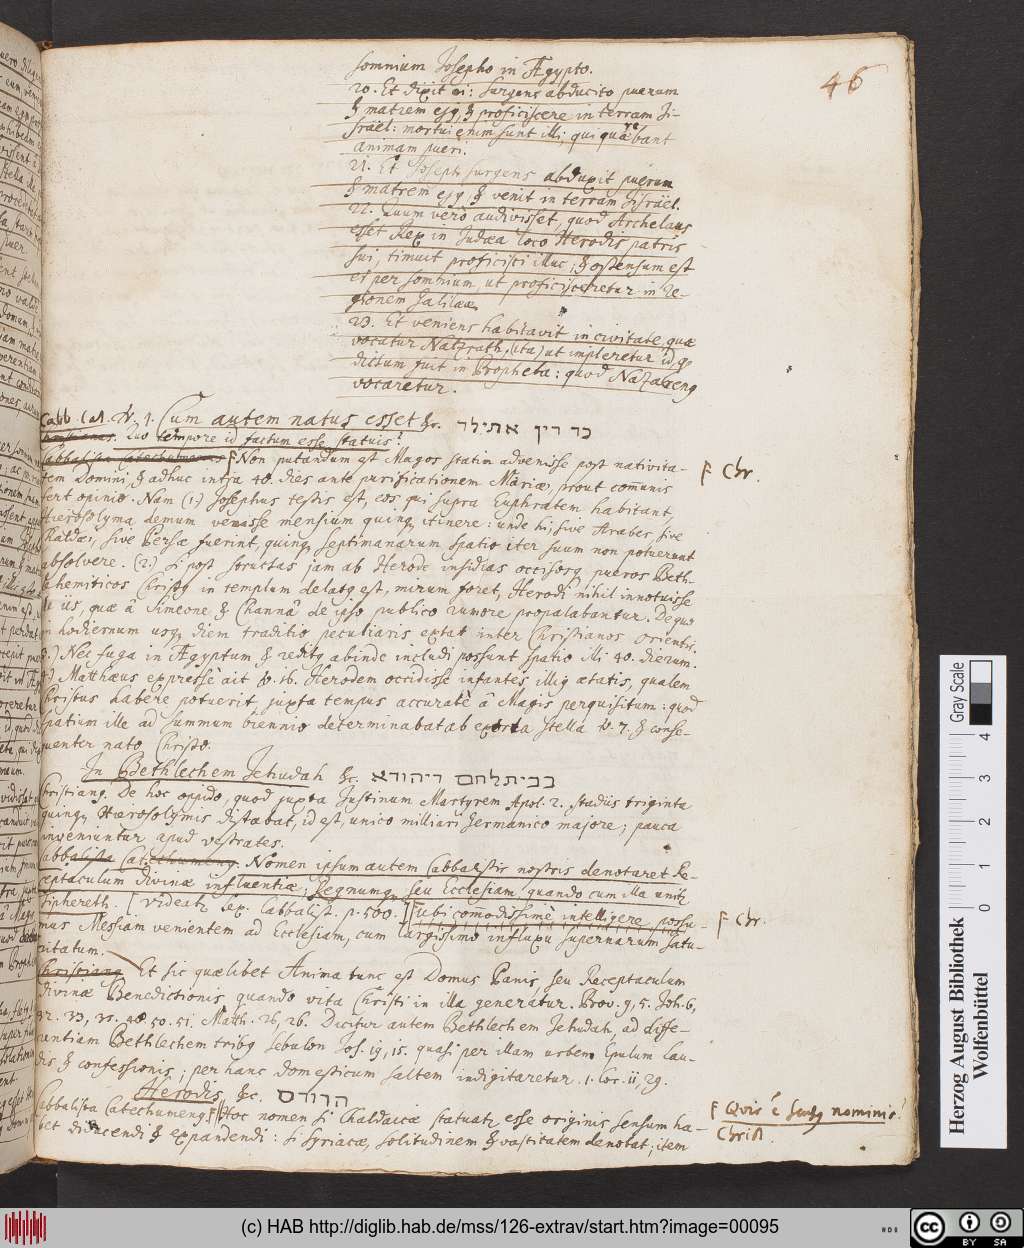 46
somnium Josepho in Ægypto.
20. Et dixit ei: surgens abducito puerum
& matrem ejq & proficiscere in terram Ji-
sräel: mortui enim sunt illi, qui quærebant
animam pueri.
21. Et Joseph surgens abduxit puerum
& matrem ejq & venit in terram Jisräel.
22. Quum verò audivisset, quod Archelaus
esset Rex in Judæa loco Herodis patris
sui, timuit proficisci illuc; & ostensum est
ei per somnium ut proficisceretur in re-
gionem Galilææ
23. Et veniens habitavit in civitate, quæ
vocatur Natzrath, (ita) ut impleretur id, q
dictum fuit in Propheta: quod Nazaræng
vocaretur.
Cabb. Cat. V. 1. Cum autem natus esset &c. כד דין אתילד
Christianus. Quo tempore id factum esse statuis?
Cabbalista Catechumenus F Non putandum est Magos statim advenisse post nativita-
F Chr.
tem Domini, & adhuc intra 40. dies ante purificationem Mariæ, prout com̃unis
fert opinio. Nam (1.) Josephus testis est, eos qui supra Euphratem habitant
Hierosolyma demum venisse mensium quinq itinere: unde hi, sive Arabes, sive
Chaldæi, sive Persæ fuerint, quinq septimanarum spatio iter suum non potuerunt
absolvere. (2.) Si post structas jam ab Herode insidias occisosq pueros Beth-
lehemiticos Christq in templum delatq est, mirum foret, Herodi nihil innotuisse
de iis, quæ â Simeone & Channâ de ipso publico rumore propalabantur. De quo
in hodiernum usq diem traditio peculiaris extat inter Christianos orientis.
3.) Nec fuga in Ægyptum & reditq abinde includi possunt spatio illi 40. dierum.
4.) Matthæus expressè ait V. 16. Herodem occidisse infantes illiq ætatis, qualem
Christus habere potuerit, juxta tempus accuratè â Magis perquisitum: quod
spatium ille ad summum biennio determinabat ab exorta stella V. 7. & conse-
quenter nato Christo.
In Bethlechem Jehudah &c. בביתלחם דיהודא
Christiang. De hoc oppido, quod juxta Justinum Martyrem Apol. 2. stadiis triginta
quinq Hierosolymis distabat, id est, unico milliari Germanico majore; pauca
inveniuntur apud vestrates.
Cabbalista Catechumeng. Nomen ipsum autem Cabbalistis nostris denotaret Re-
ceptaculum divinæ influentiæ, Regnumq seu Ecclesiam quando cum illa unitq
Tiphereth. [videatq Lex. Cabbalist. p. 500.] F ubi com̃odissimè intelligere possu-
F Chr.
mus Messiam venientem ad Ecclesiam, cum largissimo influxu supernarum satu-
ritatum.
Christiang Et sic quælibet Anima tunc est Domus Panis, seu Receptaculum
divinæ Benedictionis quando vita Christi in illa generatur. Prov. 9, 5. Joh. 6,
32. 33, 35. 48. 50. 51. Matth. 26, 26. Dicitur autem Bethlechem Jehudah, ad diffe-
rentiam Bethlechem tribq Sebulon Jos. 19, 15. quasi per illam urbem Epulum lau-
dis & confessionis; per hanc domesticum saltem indigitaretur. 1. Cor. 11, 29.
Herodis &c. הרודס
Cabbalista Catechumeng. F Hoc nomen si Chaldaicæ statuatq esse originis sensum ha-
F Qvis ê sensq nominis?
Christ.
bet diducendi & expandendi: si Syriacæ, solitudinem & vastitatem denotat; item
Gray Scale
0 1 2 3 4
Herzog August Bibliothek
Wolfenbüttel
(c) HAB http://diglib.hab.de/mss/126-extrav/start.htm?image=00095
cc BY SA